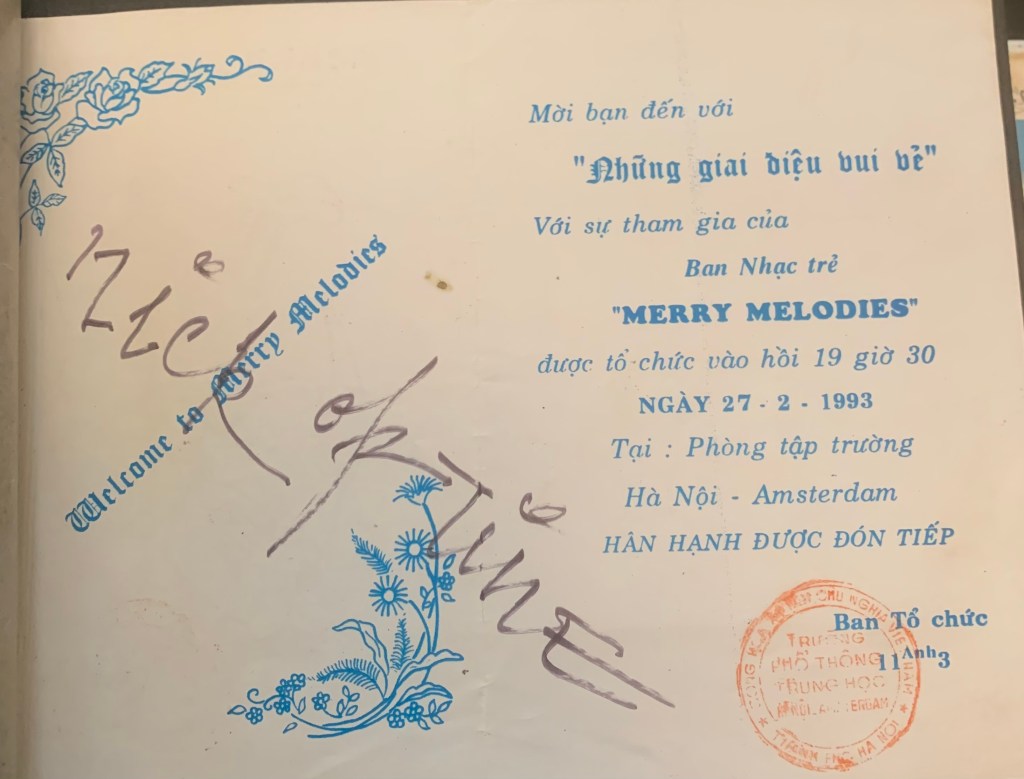 Welcome to Merry Melodies
Mời bạn đến với
"Những giai điệu vui vẻ"
Với sự tham gia của
Ban Nhạc trẻ
"MERRY MELODIES"
được tổ chức vào hồi 19 giờ 30
NGÀY 27 - 2 - 1993
Tại : Phòng tập trường
Hà Nội - Amsterdam
HÂN HẠNH ĐƯỢC ĐÓN TIẾP
Ban Tổ chức
11 Anh 3
CHỦ NGHĨA VIỆT NAM
TRƯỜNG
PHỔ THÔNG
TRUNG HỌC
HÀ NỘI AMSTERDAM
THÀNH PHỐ HÀ NỘI